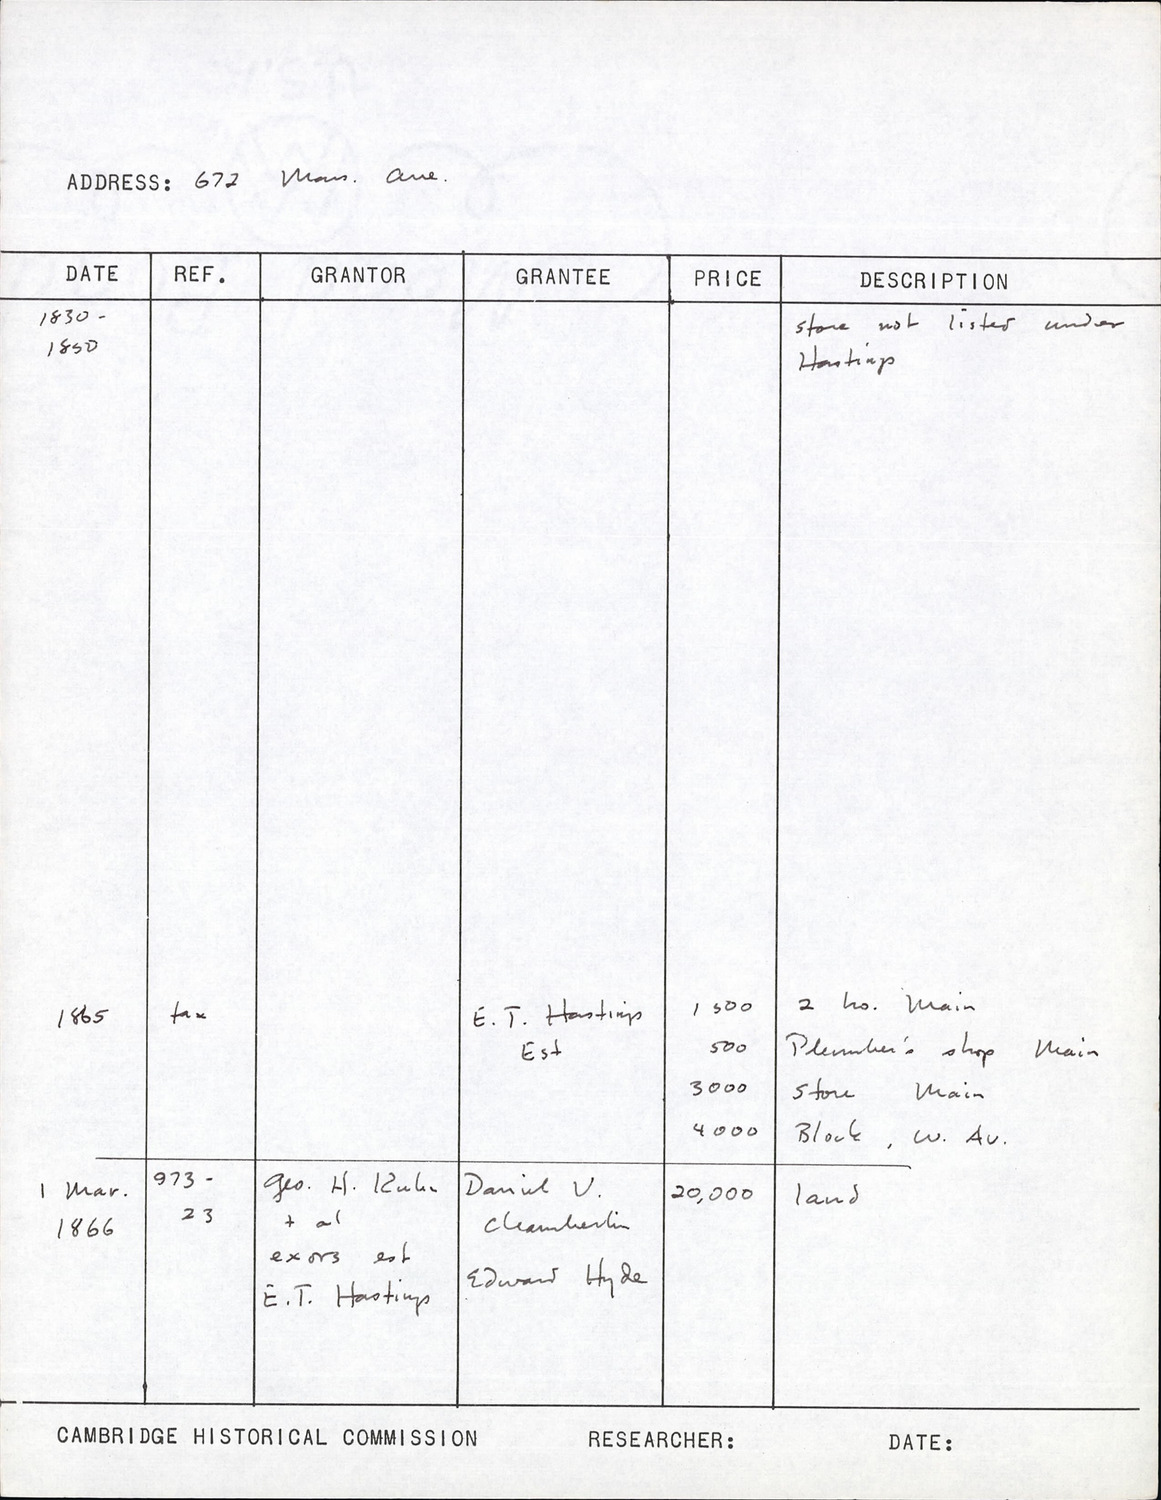 ADDRESS: 672 Mass. Ave.
DATE REF. GRANTOR GRANTEE PRICE DESCRIPTION
1830 - store not listed under
1850 Hastings
1865 tax E. T. Hastings 1500 2 ho. Main
Est 500 Plumber's shop Main
3000 Store Main
4000 Block, W. Av.
1 Mar. 973 - Geo. H. Kuhn Daniel U. 20,000 land
1866 23 + al Chamberlin
exors est Edward Hyde
E.T. Hastings
CAMBRIDGE HISTORICAL COMMISSION RESEARCHER: DATE: